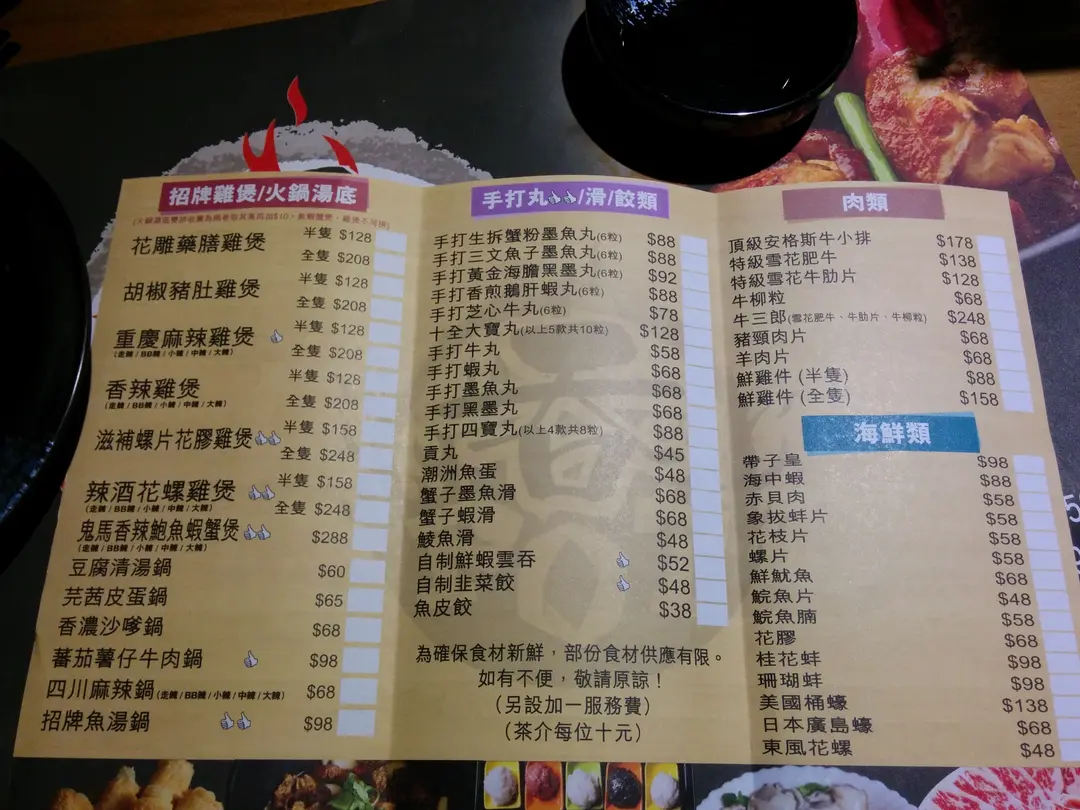 招牌雞煲/火鍋湯底
花雕藥膳雞煲 半隻 $128
全隻 $208
胡椒豬肚雞煲 半隻 $128
全隻 $208
重慶麻辣雞煲 半隻 $128
(走辣/BB辣/小辣/中辣/大辣) 全隻 $208
香辣雞煲 半隻 $128
(走辣/BB辣/小辣/中辣/大辣) 全隻 $208
滋補螺片花膠雞煲 半隻 $158
全隻 $248
辣酒花螺雞煲 半隻 $158
(走辣/BB辣/小辣/中辣/大辣) 全隻 $248
鬼馬香辣鮑魚蝦蟹煲 $288
(走辣/BB辣/小辣/中辣/大辣)
豆腐清湯鍋 $60
芫茜皮蛋鍋 $65
香濃沙嗲鍋 $68
蕃茄薯仔牛肉鍋 $98
四川麻辣鍋(走辣/BB辣/小辣/中辣/大辣) $68
招牌魚湯鍋 $98
手打丸/滑/餃類
手打生拆蟹粉墨魚丸(6粒) $88
手打三文魚子墨魚丸(6粒) $88
手打黃金海膽黑墨丸(6粒) $92
手打香煎鵝肝蝦丸(6粒) $88
手打芝心牛丸(6粒) $78
十全大寶丸(以上5款共10粒) $128
手打牛丸 $58
手打蝦丸 $68
手打墨魚丸 $68
手打黑墨丸 $68
手打四寶丸(以上4款共8粒) $88
貢丸 $45
潮洲魚蛋 $48
蟹子墨魚滑 $68
蟹子蝦滑 $68
鯪魚滑 $48
自制鮮蝦雲吞 $52
自制韭菜餃 $48
魚皮餃 $38
為確保食材新鮮，部份食材供應有限。
如有不便，敬請原諒！
(另設加一服務費)
(茶介每位十元)
肉類
頂級安格斯牛小排 $178
特級雪花肥牛 $138
特級雪花牛肋片 $128
牛柳粒 $68
牛三郎(雪花肥牛、牛肋片、牛柳粒) $248
豬頸肉片 $68
羊肉片 $68
鮮雞件 (半隻) $88
鮮雞件 (全隻) $158
海鮮類
帶子皇 $98
海中蝦 $88
赤貝肉 $58
象拔蚌片 $58
花枝片 $58
螺片 $58
鮮魷魚 $68
鯇魚片 $48
鯇魚腩 $58
花膠 $68
桂花蚌 $98
珊瑚蚌 $98
美國桶蠔 $138
日本廣島蠔 $68
東風花螺 $48